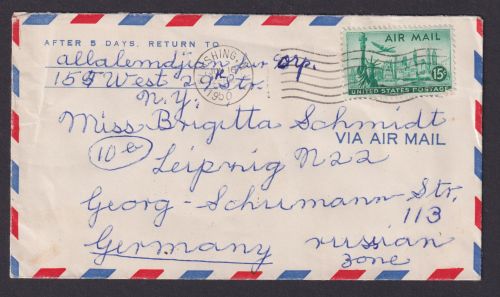 AFTER 5 DAYS, RETURN TO
allalemdjian Fur Corp.
155 West 29. Str.
N.Y.
WASHINGTON
1950
AIR MAIL
15¢
UNITED STATES POSTAGE
Miss Brigitta Schmidt
VIA AIR MAIL
10b
Leipzig N22
Georg-Schumann-Str.
113
Germany russian
zone